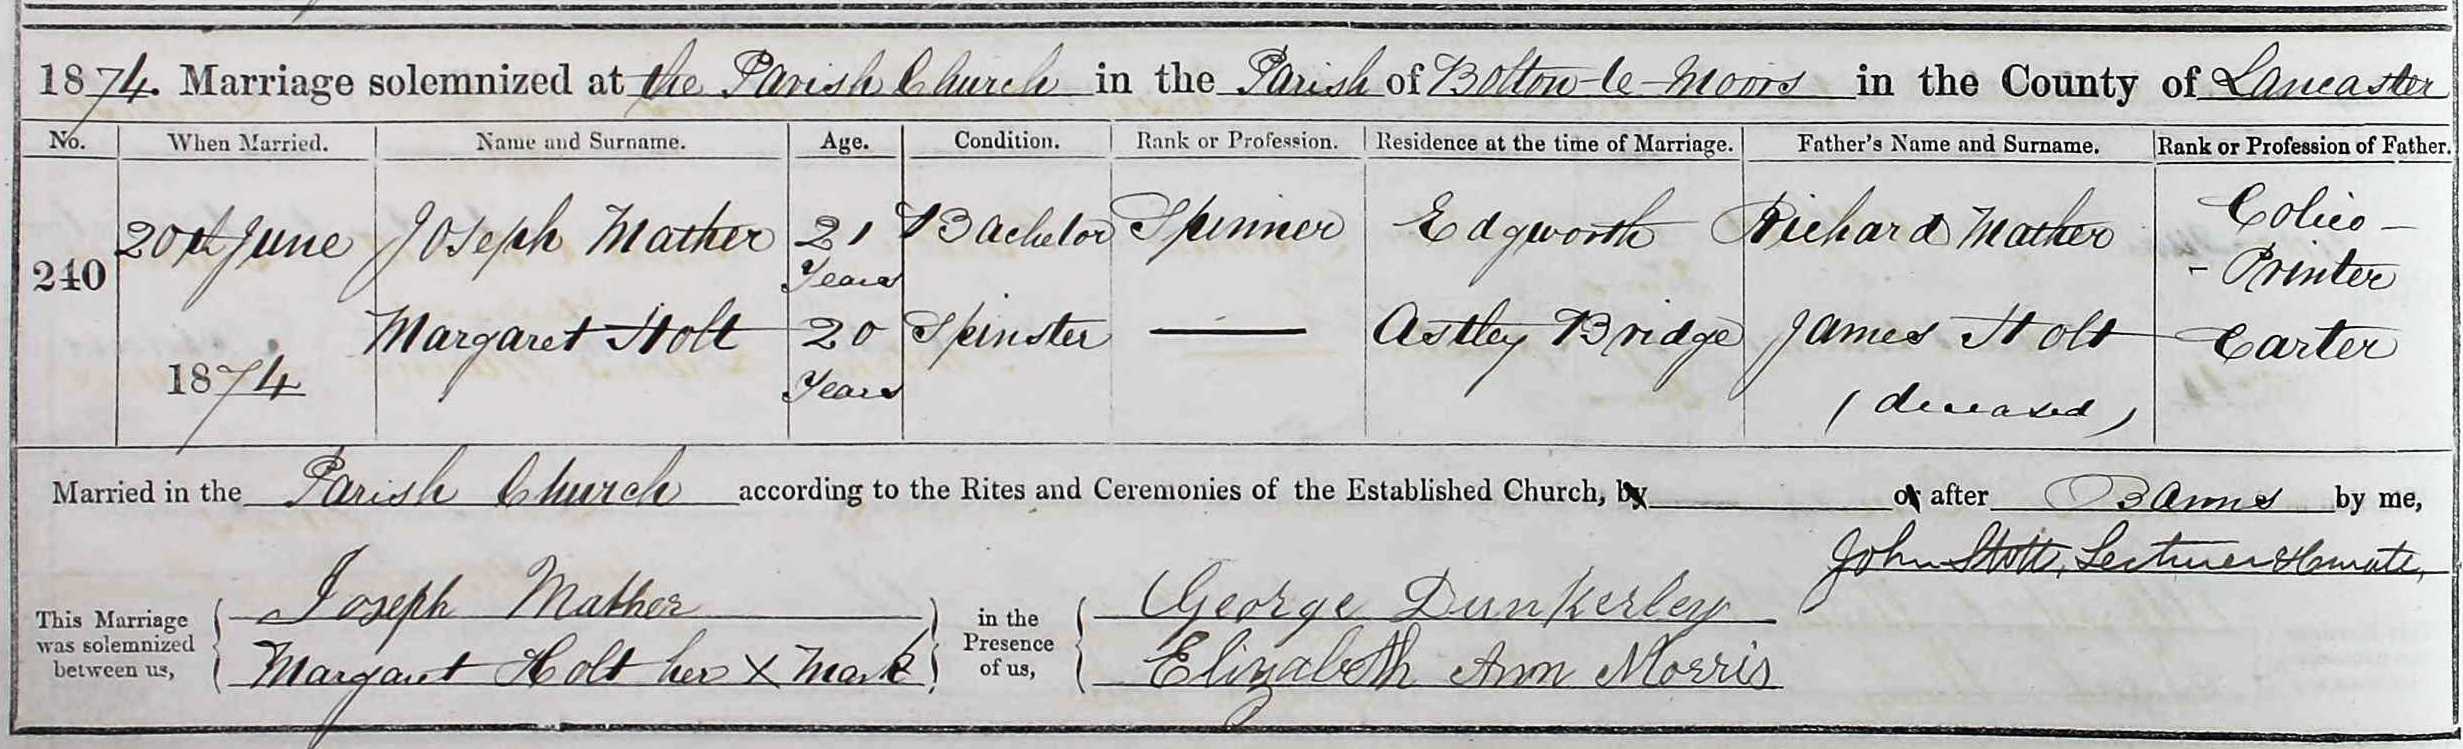 1874. Marriage solemnized at the Parish Church in the Parish of Bolton-le-Moors in the County of Lancaster
No. When Married. Name and Surname. Age. Condition. Rank or Profession. Residence at the time of Marriage. Father's Name and Surname. Rank or Profession of Father.
240 20th June 1874 Joseph Mather 21 Years Bachelor Spinner Edgworth Richard Mather Colico - - Printer
Margaret Holt 20 Years Spinster Astley Bridge James Holt (deceased) Carter
Married in the Parish Church according to the Rites and Ceremonies of the Established Church, by or after Banns by me,
John Stott, Lecturer & Curate,
This Marriage was solemnized between us, Joseph Mather
Margaret Holt her X Mark
in the Presence of us, George Dunkerley
Elizabeth Ann Morris